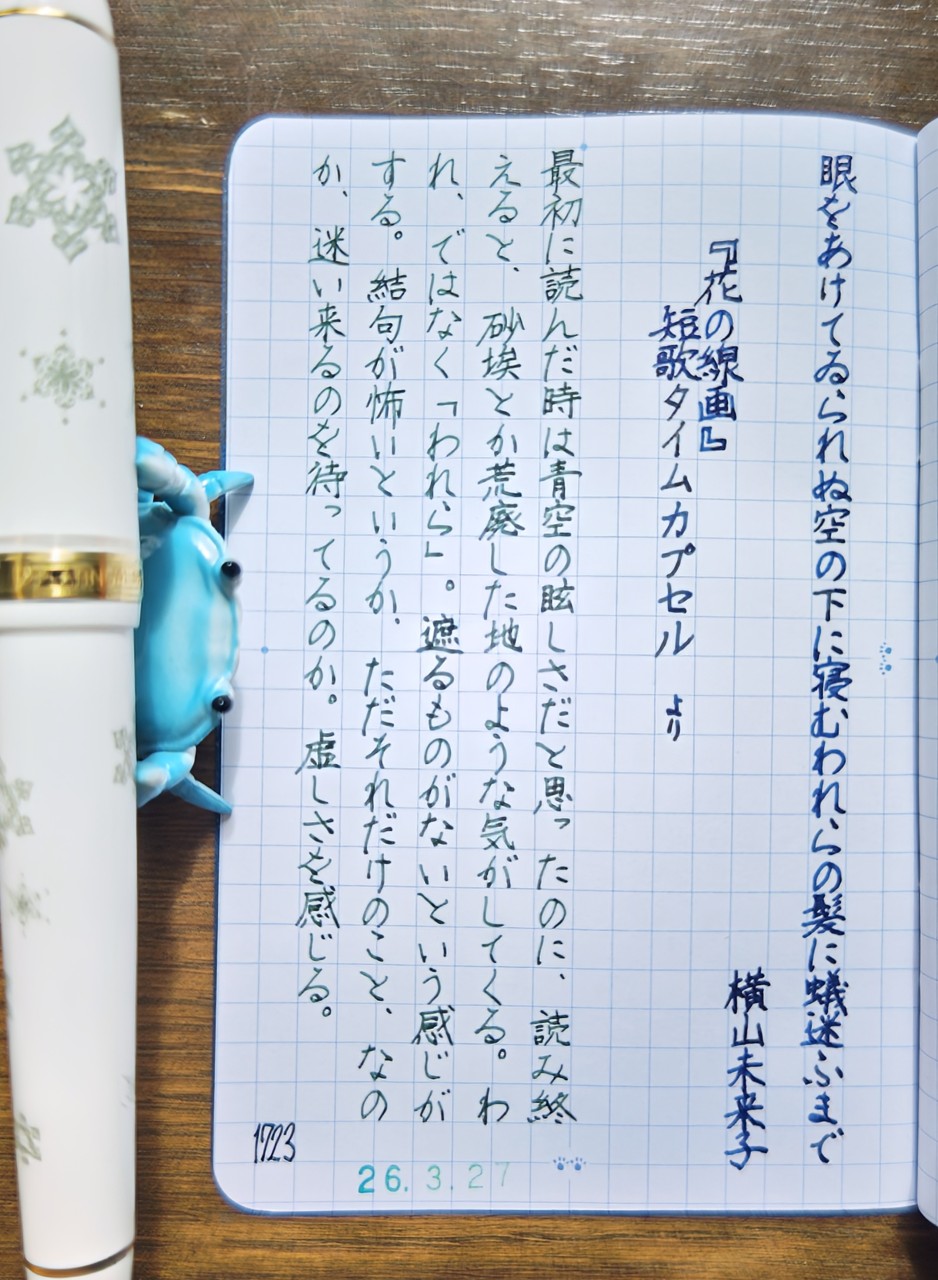 眼をあけてゐられぬ空の下に寝むわれらの髪に蟻迷ふまで
横山未来子
『花の線画』
短歌タイムカプセル より
最初に読んだ時は青空の眩しさだと思ったのに、読み終
えると、砂埃とか荒廃した地のような気がしてくる。わ
れ、ではなく「われら」。遮るものがないという感じが
する。結句が怖いというか、ただそれだけのこと、なの
か、迷い来るのを待ってるのか。虚しさを感じる。
1723
26.3.27